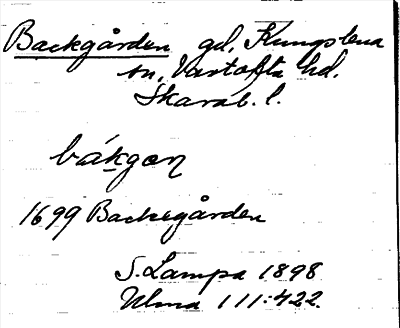 Backgården gd, Kungslena
sn, Vartofta hd.
Skarab. l.
bákgọn
1699 Backegården
S. Lampa 1898
Ulma 111:422.